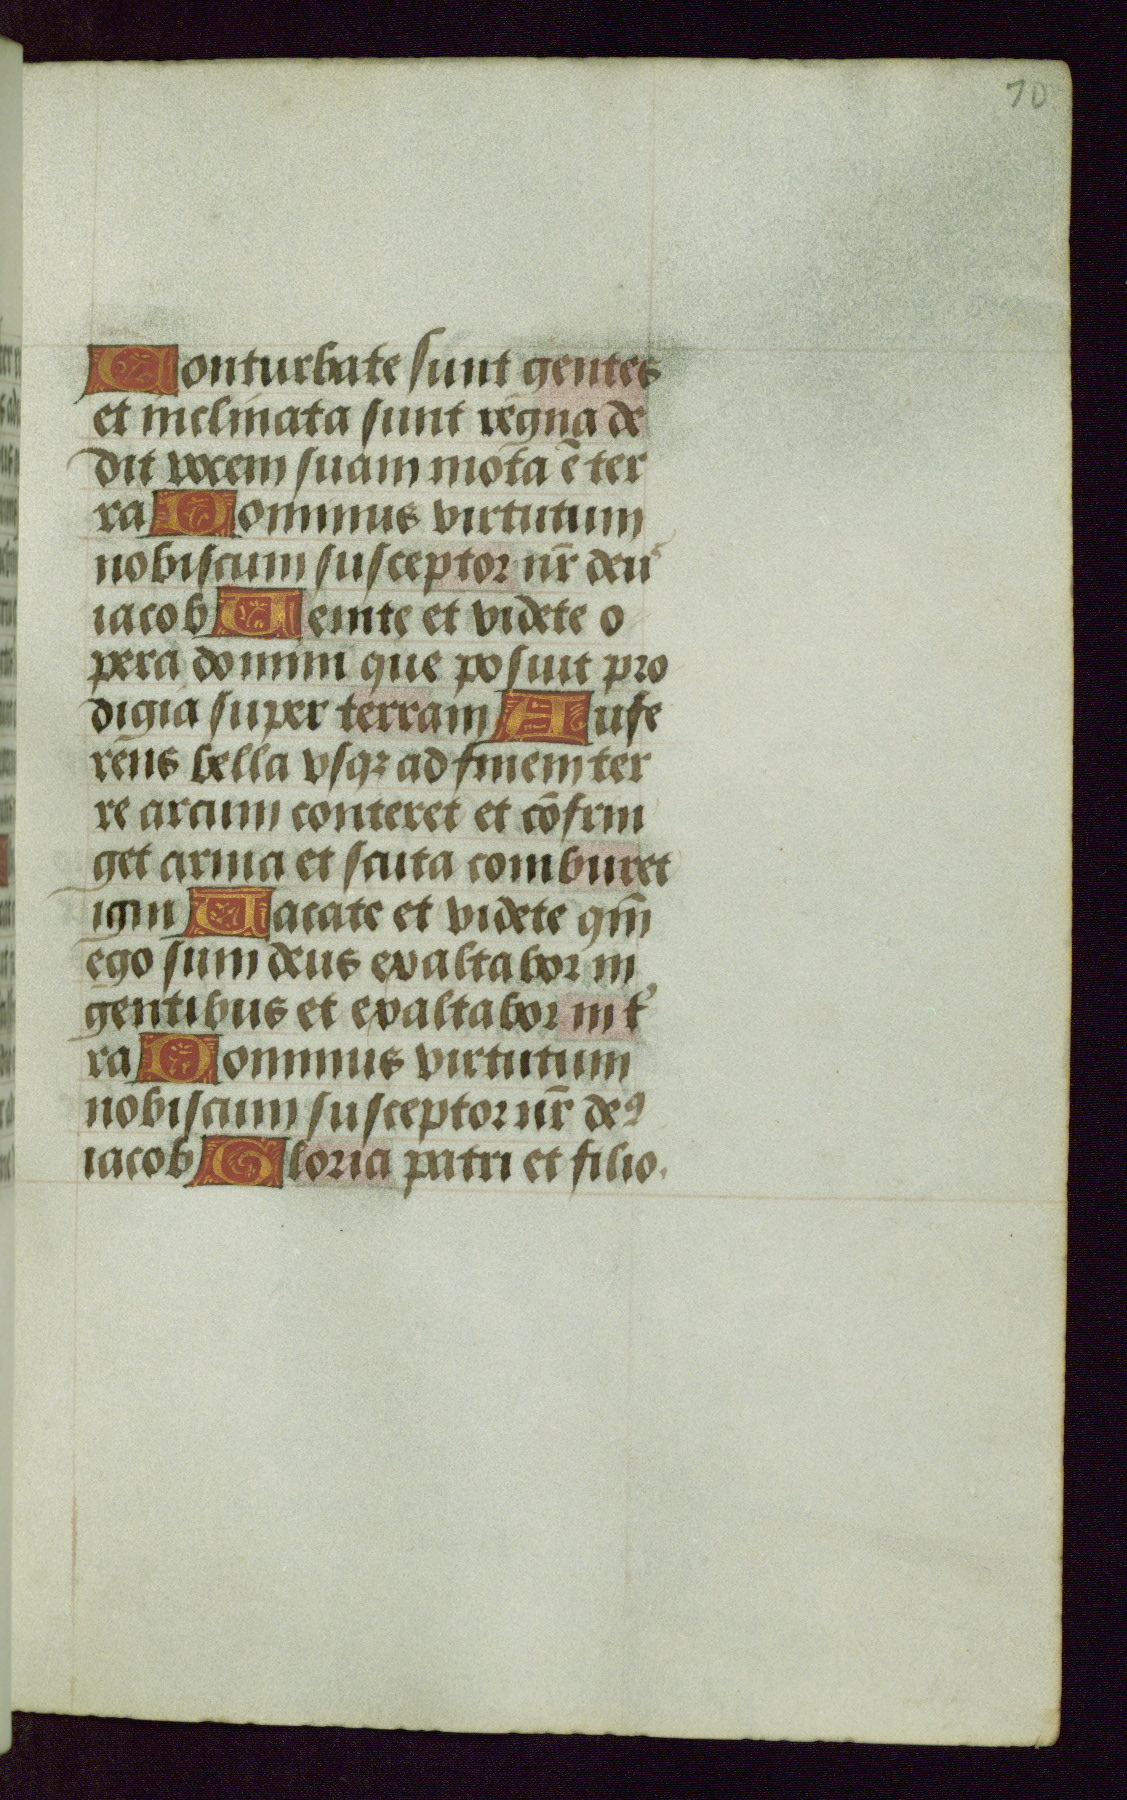 70
Conturbate sunt gentes
et inclinata sunt regna de
dit vocem suam mota ē ter
ra Dominus virtutum
nobiscum susceptor nr̄ deus
iacob Uenite et videte o
pera domini que posuit pro
digia super terram Aufe
rens bella vsqꝫ ad finem ter
re arcum conteret et cōfrin
get arma et scuta comburet
igni Uacate et videte qm̄
ego sum deus exaltabor in
gentibus et exaltabor in t'
ra Dominus virtutum
nobiscum susceptor nr̄ deꝰ
iacob Gloria patri et filio.